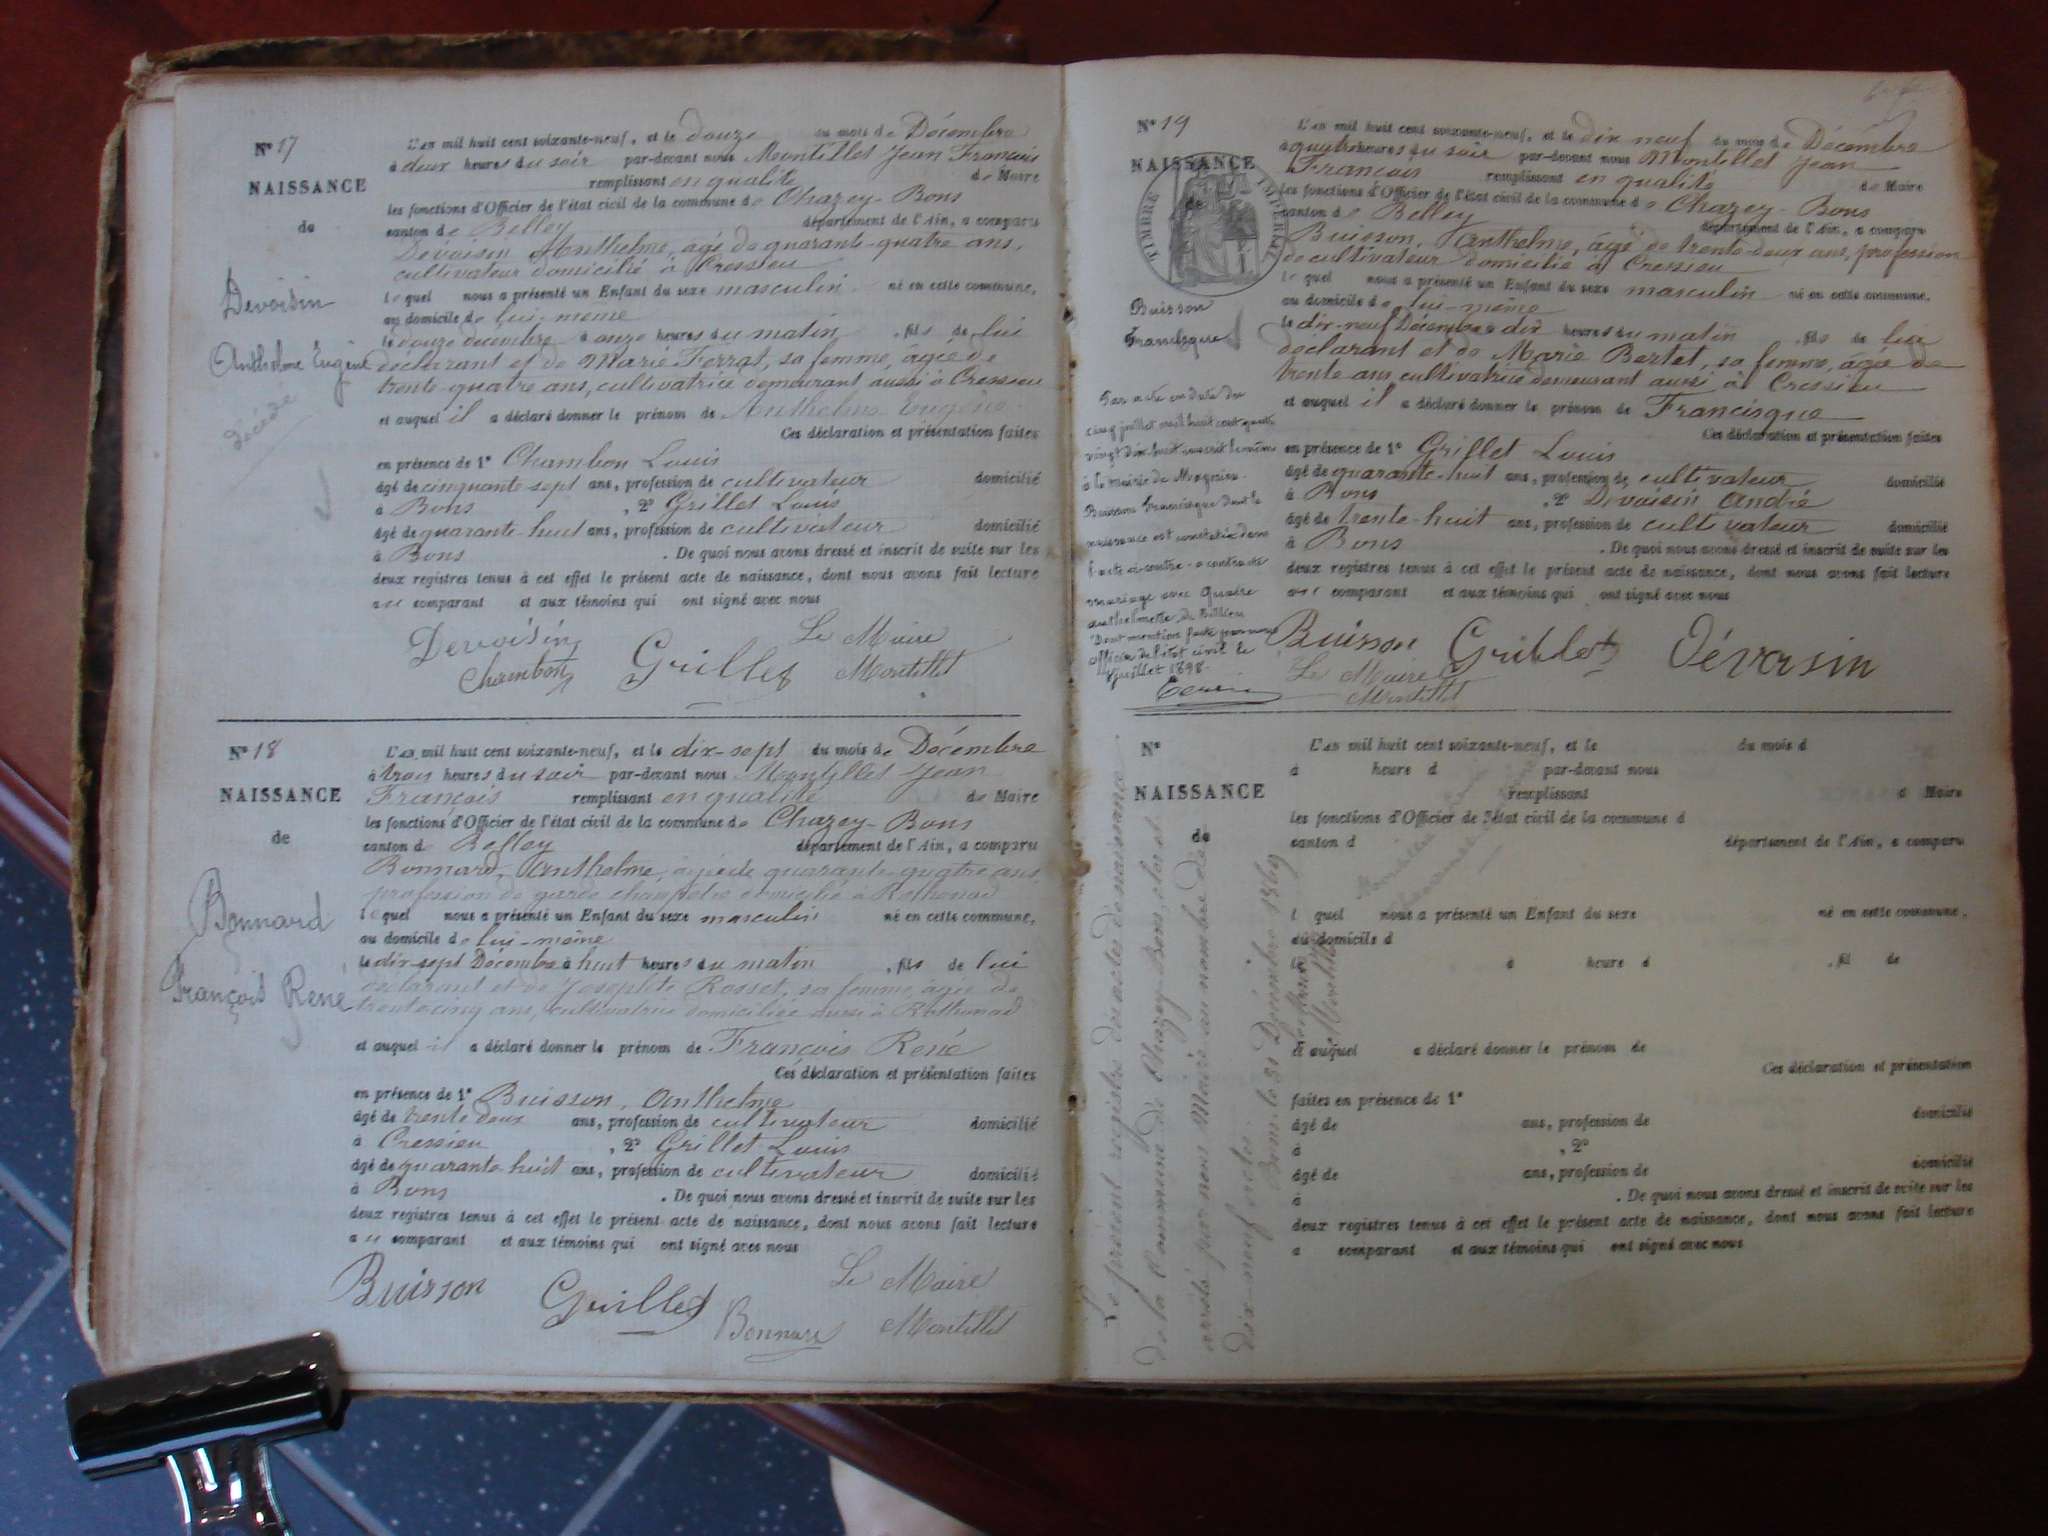 N° 17
NAISSANCE
de
Devoisin
Anthelme Eugène
décédé
L'an mil huit cent soixante-neuf, et le douze du mois de Décembre
à deux heures du soir par-devant nous Montillet Jean François
remplissant en qualité de Maire
les fonctions d'Officier de l'état civil de la commune de Chazey-Bons
canton de Belley département de l'Ain, a comparu
Devoisin Anthelme, âgé de quarante-quatre ans,
cultivateur domicilié à Cressieu
lequel nous a présenté un Enfant du sexe masculin né en cette commune,
au domicile de lui-même
le douze décembre à onze heures du matin, fils de lui
déclarant et de Marie Ferrat, sa femme, âgée de
trente-quatre ans, cultivatrice demeurant aussi à Cressieu
et auquel il a déclaré donner le prénom de Anthelme Eugène
Ces déclaration et présentation faites
en présence de 1° Chambon Louis
âgé de cinquante sept ans, profession de cultivateur domicilié
à Bons, 2° Grillet Louis
âgé de quarante-huit ans, profession de cultivateur domicilié
à Bons. De quoi nous avons dressé et inscrit de suite sur les
deux registres tenus à cet effet le présent acte de naissance, dont nous avons fait lecture
au comparant et aux témoins qui ont signé avec nous
Devoisin Le Maire
Chambon Grillet Montillet
N° 18
NAISSANCE
de
Bonnard
François René
L'an mil huit cent soixante-neuf, et le dix-sept du mois de Décembre
à trois heures du soir par-devant nous Montillet Jean
François remplissant en qualité de Maire
les fonctions d'Officier de l'état civil de la commune de Chazey-Bons
canton de Belley département de l'Ain, a comparu
Bonnard, Anthelme, âgé de quarante-quatre ans,
profession de garde champêtre domicilié à Rothonod
lequel nous a présenté un Enfant du sexe masculin né en cette commune,
au domicile de lui-même
le dix-sept Décembre à huit heures du matin, fils de lui
déclarant et de Josephte Rosset, sa femme, âgée de
trente cinq ans, cultivatrice domiciliée aussi à Rothonod
et auquel il a déclaré donner le prénom de François René
Ces déclaration et présentation faites
en présence de 1° Buisson, Anthelme
âgé de trente deux ans, profession de cultivateur domicilié
à Cressieu, 2° Grillet Louis
âgé de quarante-huit ans, profession de cultivateur domicilié
à Bons. De quoi nous avons dressé et inscrit de suite sur les
deux registres tenus à cet effet le présent acte de naissance, dont nous avons fait lecture
au comparant et aux témoins qui ont signé avec nous
Buisson Grillet Le Maire
Bonnard Montillet
N° 19
NAISSANCE
de
TIMBRE IMPERIAL
Buisson
Francisque
Par acte en date du
cinq juillet mil huit cent quatre
vingt dix huit inscrit le même
à la mairie de
Buisson Francisque dont la
naissance est constatée dans
l'acte ci-contre a contracté
mariage avec
anthelmette, de Billieu
Dont mention faite par nous
officier de l'état civil le
juillet 1898.
L'an mil huit cent soixante-neuf, et le dix neuf du mois de Décembre
à quatre heures du soir par-devant nous Montillet Jean
François remplissant en qualité de Maire
les fonctions d'Officier de l'état civil de la commune de Chazey-Bons
canton de Belley département de l'Ain, a comparu
Buisson, Anthelme, âgé de trente-deux ans, profession
de cultivateur domicilié à Cressieu
lequel nous a présenté un Enfant du sexe masculin né en cette commune,
au domicile de lui-même
le dix-neuf Décembre à dix heures du matin, fils de lui
déclarant et de Marie Bertet, sa femme, âgée de
trente ans, cultivatrice demeurant aussi à Cressieu
et auquel il a déclaré donner le prénom de Francisque
Ces déclaration et présentation faites
en présence de 1° Grillet Louis
âgé de quarante-huit ans, profession de cultivateur domicilié
à Bons, 2° Devoisin André
âgé de trente-huit ans, profession de cultivateur domicilié
à Bons. De quoi nous avons dressé et inscrit de suite sur les
deux registres tenus à cet effet le présent acte de naissance, dont nous avons fait lecture
au comparant et aux témoins qui ont signé avec nous
Buisson Grillet Dévoisin
Le Maire
Montillet
N°
NAISSANCE
de
L'an mil huit cent soixante-neuf, et le du mois d
à heure d par-devant nous
remplissant d Maire
les fonctions d'Officier de l'état civil de la commune d
canton d département de l'Ain, a comparu
l quel nous a présenté un Enfant du sexe né en cette commune,
au domicile d
le à heure d, fil de
et auquel a déclaré donner le prénom de
Ces déclaration et présentation
faites en présence de 1°
âgé de ans, profession de domicilié
à, 2°
âgé de ans, profession de domicilié
à. De quoi nous avons dressé et inscrit de suite sur les
deux registres tenus à cet effet le présent acte de naissance, dont nous avons fait lecture
a comparant et aux témoins qui ont signé avec nous
Le présent registre des actes de naissance
de la commune de Chazey-Bons, clos et
arrêté par nous Maire au nombre de
dix-neuf actes.
Bons le 31 Décembre 1869
Le Maire
Montillet